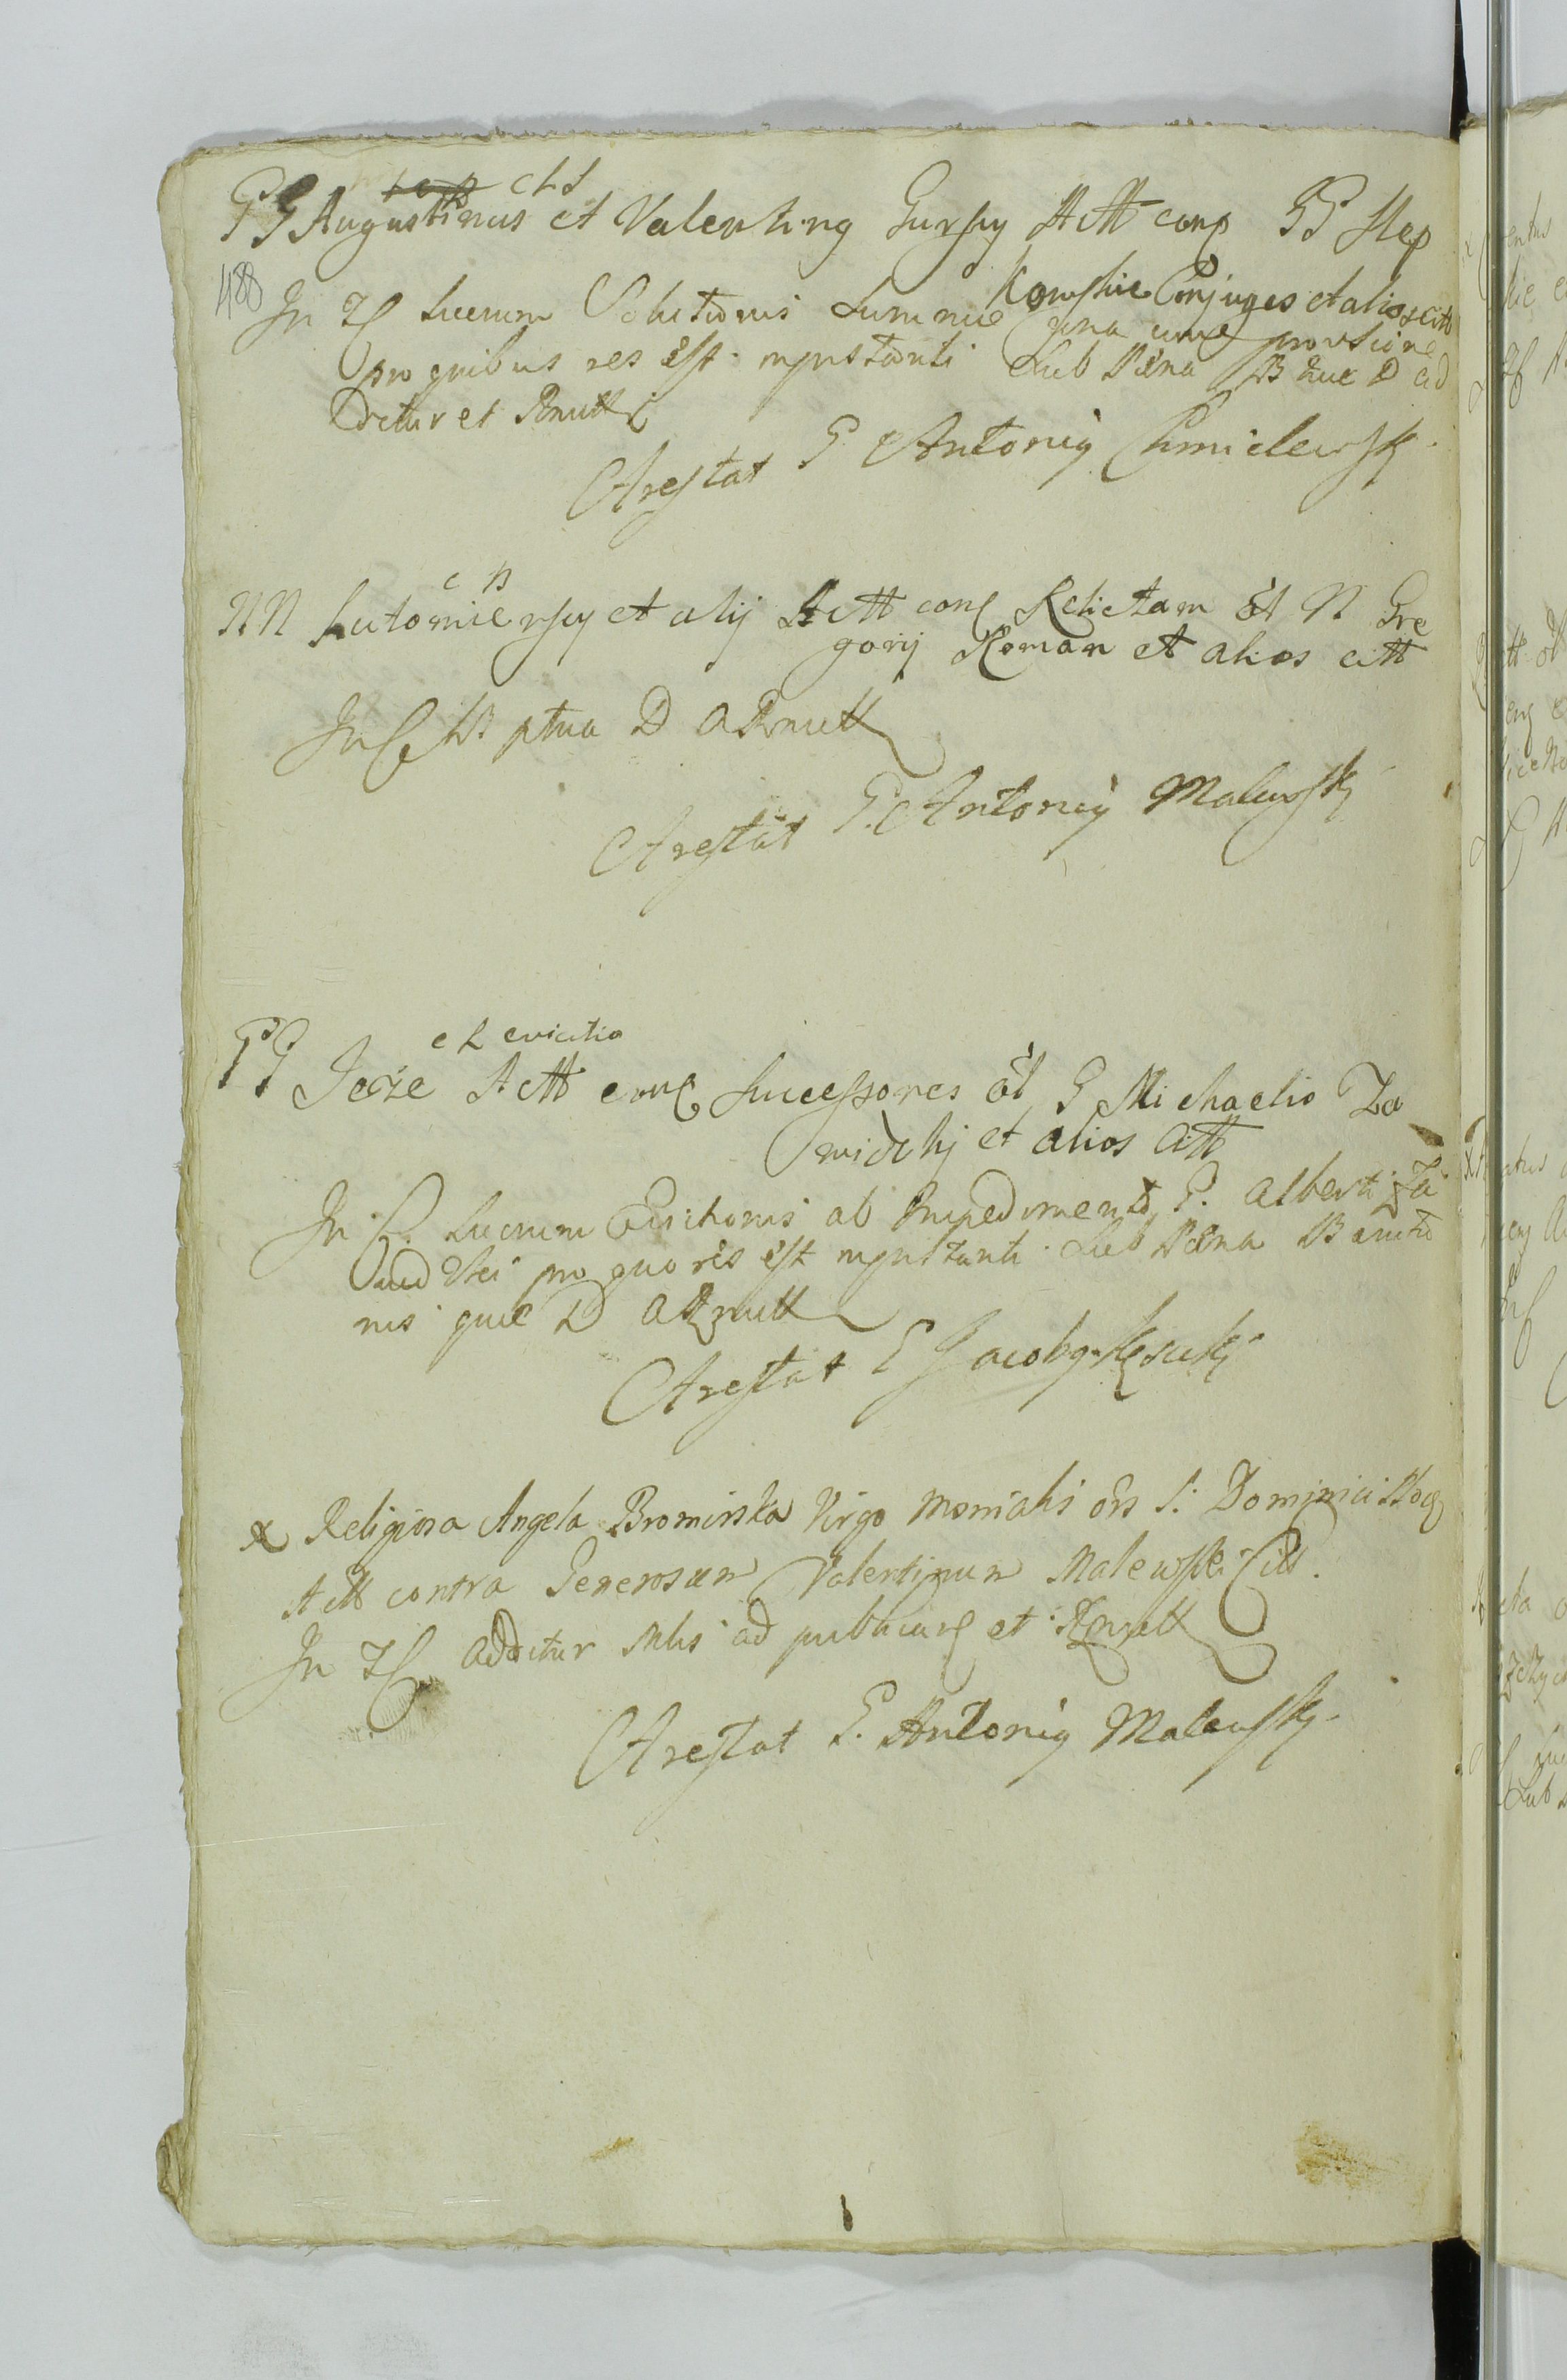 c L S
GG Augustinus et Valenting Gursky Actt con GG Step
kowskie Conjuges et alios citt
488
In Lucrum Solutionis Summae una cum provsione
pro quibus res est mpnstanti Sub Paena B quae D ad
ditur et Pmitt
Arestat G Antoniy Chmielewsky
c B
NN Lutomiersky et alij Actt con Relictam ol N Gre
gorij Roman et alios citt
In B ptua D a Pmitt
Arestat G. Antoniy Malewsky
c L evictio
GG Jeże Actt con Successores ol G Michaelis Za
widzkj et alios Citt
In Lucrum Evictionis ab Impedimento G. Alberti Za
widzkei pro quo res est mpnstanti Sub Paena Bannitio
nis quae D a Pmitt
Arestat G Jacobg
x Religiosa Angela Bromirska Virgo Monialis ors S. Dominici
Actt contra Generosum Valentinum Malewski Citt.
In additur Mlis ad publicang et Pmitt
Arestat G. Antoniy Malewsky